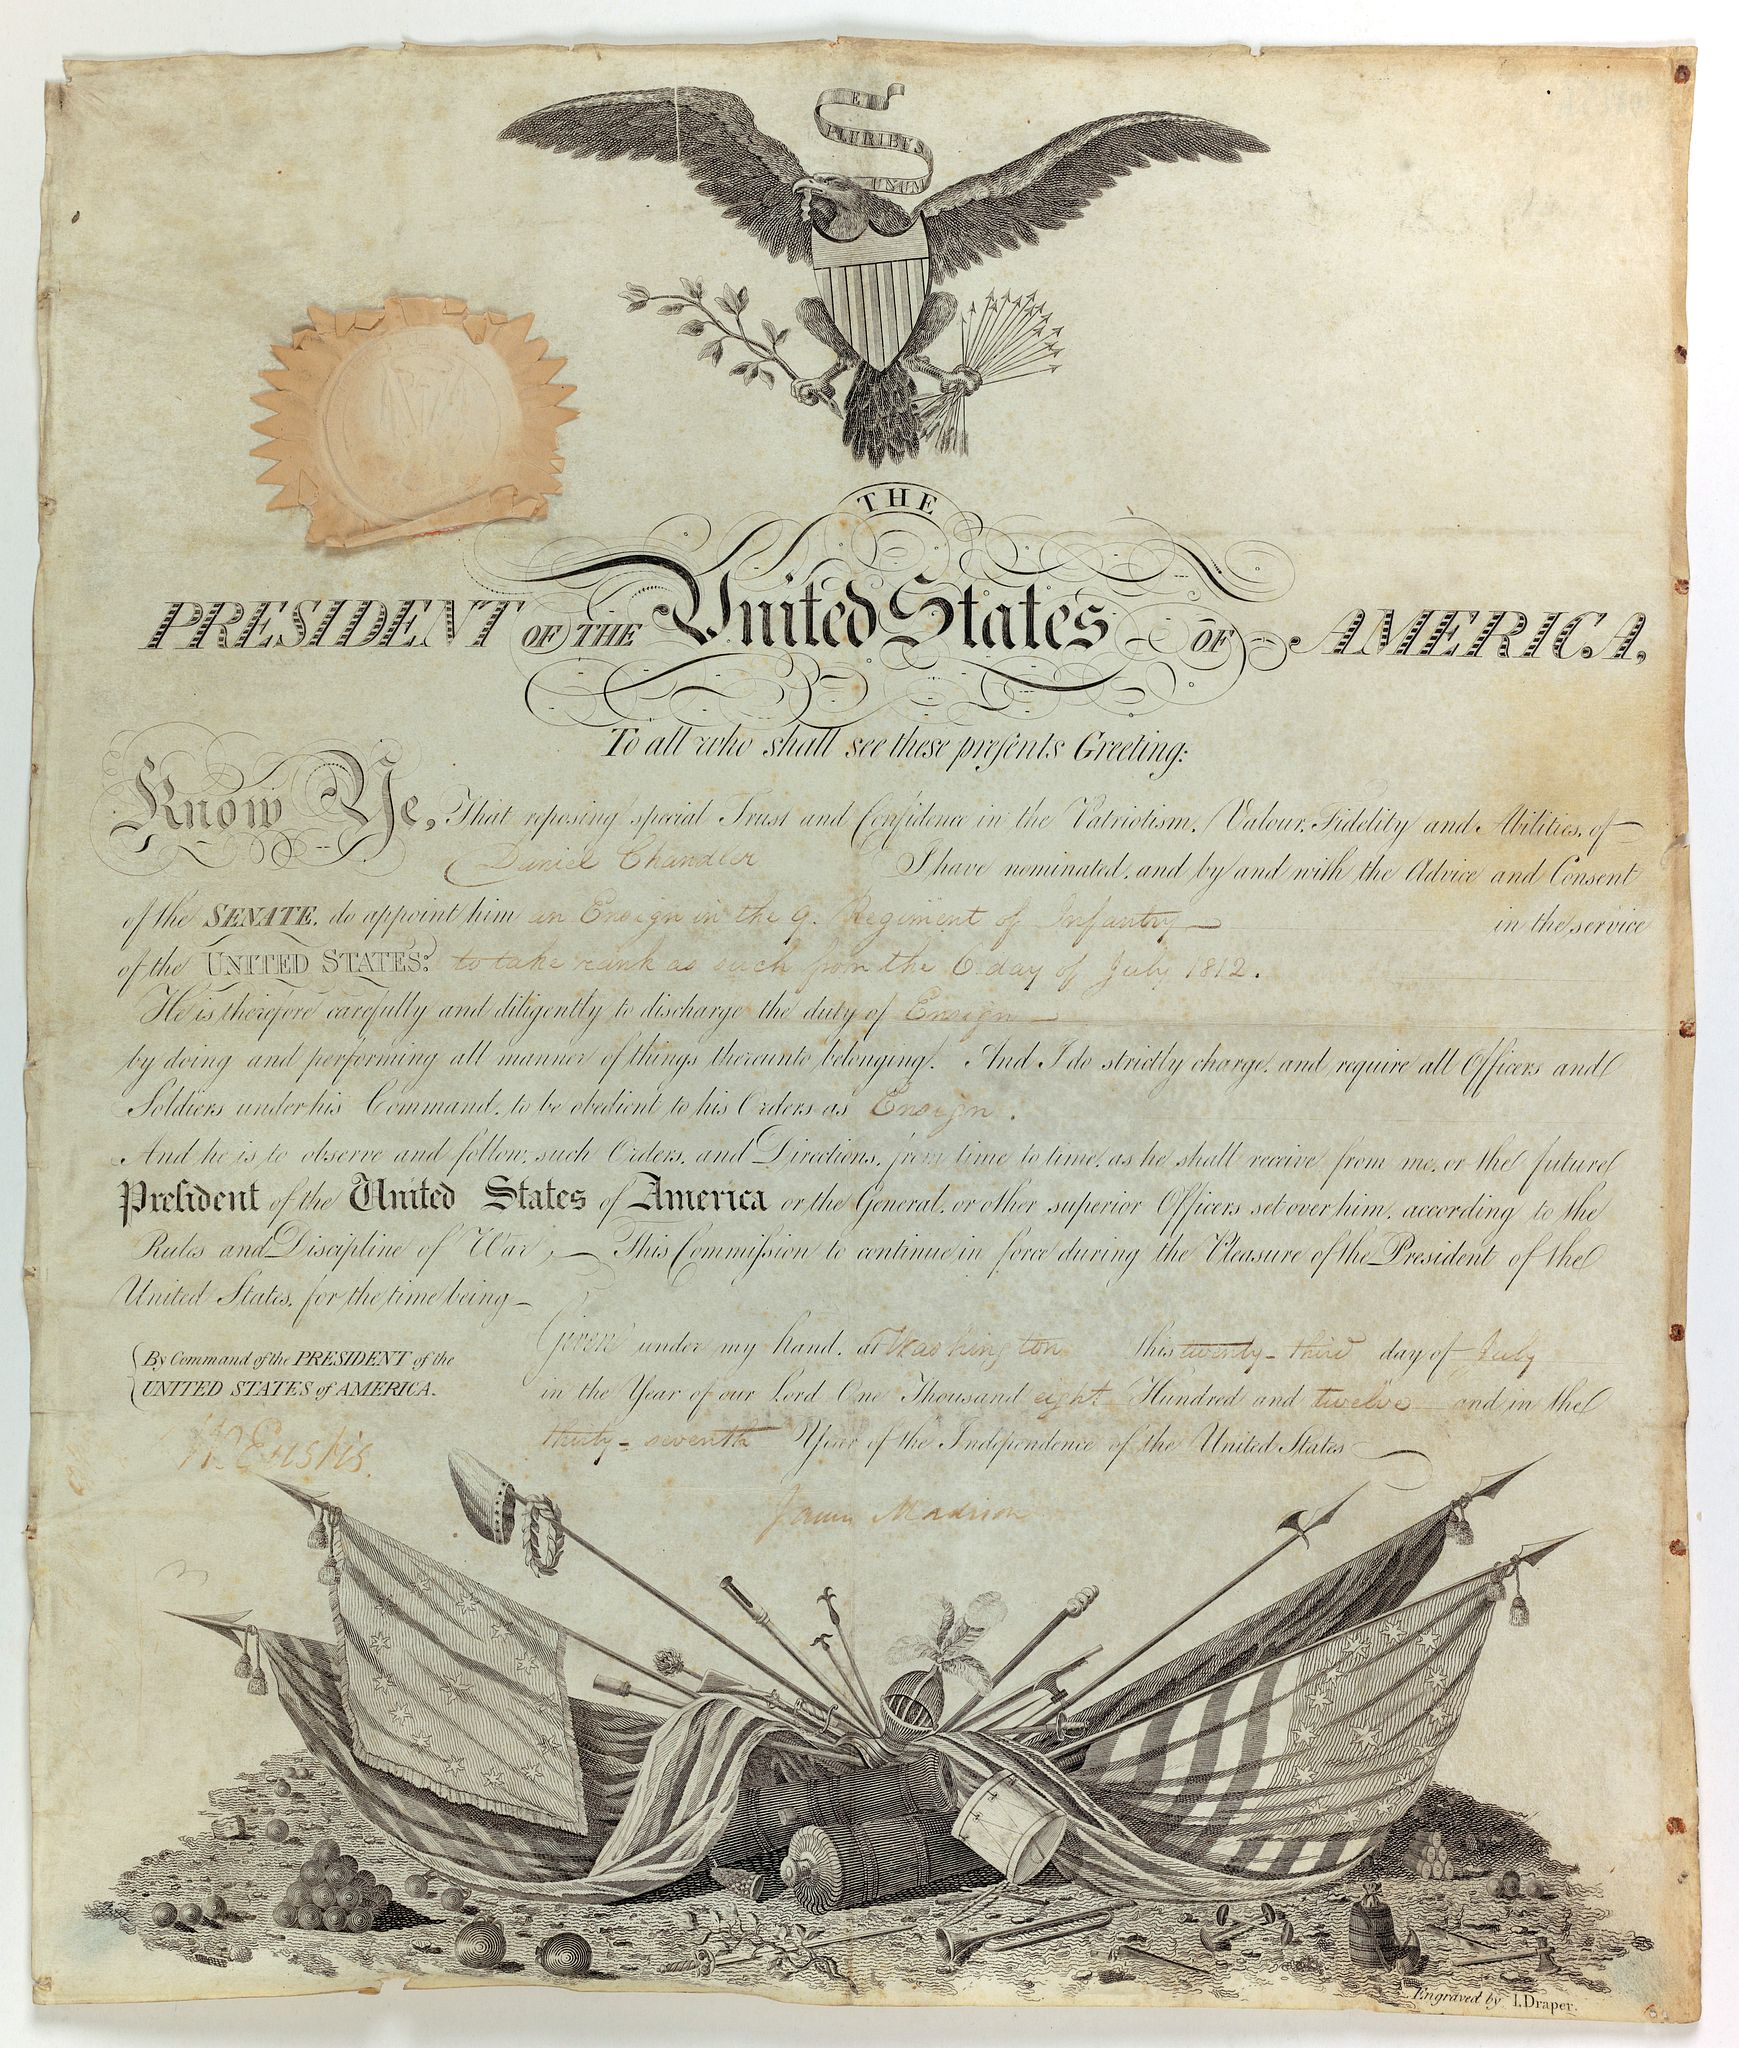 E
PLURIBUS
UNUM
THE
PRESIDENT OF THE United States OF AMERICA,
To all who shall see these presents Greeting:
Know Ye, That reposing special Trust and Confidence in the Patriotism, Valour, Fidelity and Abilities, of
Daniel Chandler I have nominated, and by and with the Advice and Consent
of the SENATE, do appoint him an Ensign in the 9. Regiment of Infantry in the service
of the UNITED STATES: to take rank as such from the 6 day of July 1812.
He is therefore carefully and diligently to discharge the duty of Ensign
by doing and performing all manner of things thereunto belonging. And I do strictly charge, and require all Officers and
Soldiers under his Command, to be obedient to his Orders as Ensign.
And he is to observe and follow, such Orders, and Directions, from time to time, as he shall receive from me, or the future
President of the United States of America or the General, or other superior Officers set over him, according to the
Rules and Discipline of War, This Commission to continue in force during the Pleasure of the President of the
United States, for the time being
Given under my hand, at Washington this twenty-third day of July
By Command of the PRESIDENT of the
UNITED STATES of AMERICA.
in the Year of our Lord One Thousand eight Hundred and twelve and in the
thirty-seventh Year of the Independence of the United States
W. Eustis.
James Madison
Engraved by I. Draper.